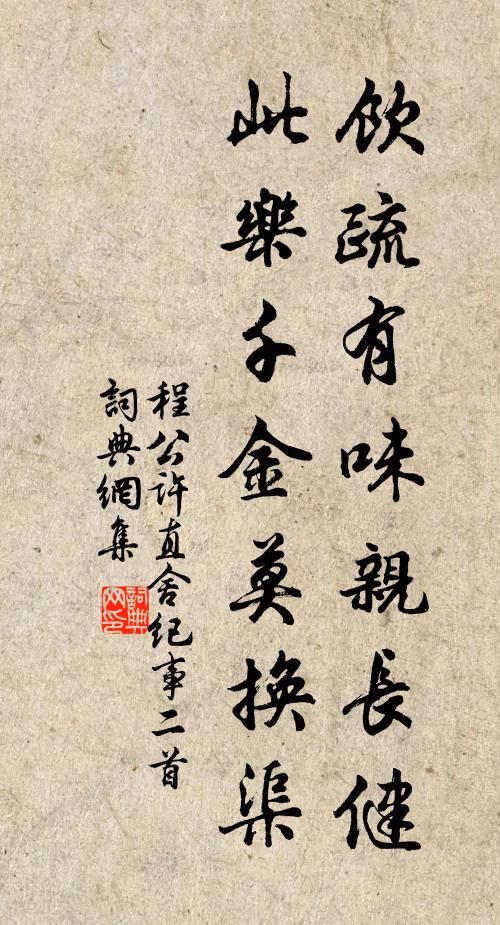 飲疏有味親長健
此樂千金莫換渠
程公許直舍紀事二首
詞典網集
詞典网印